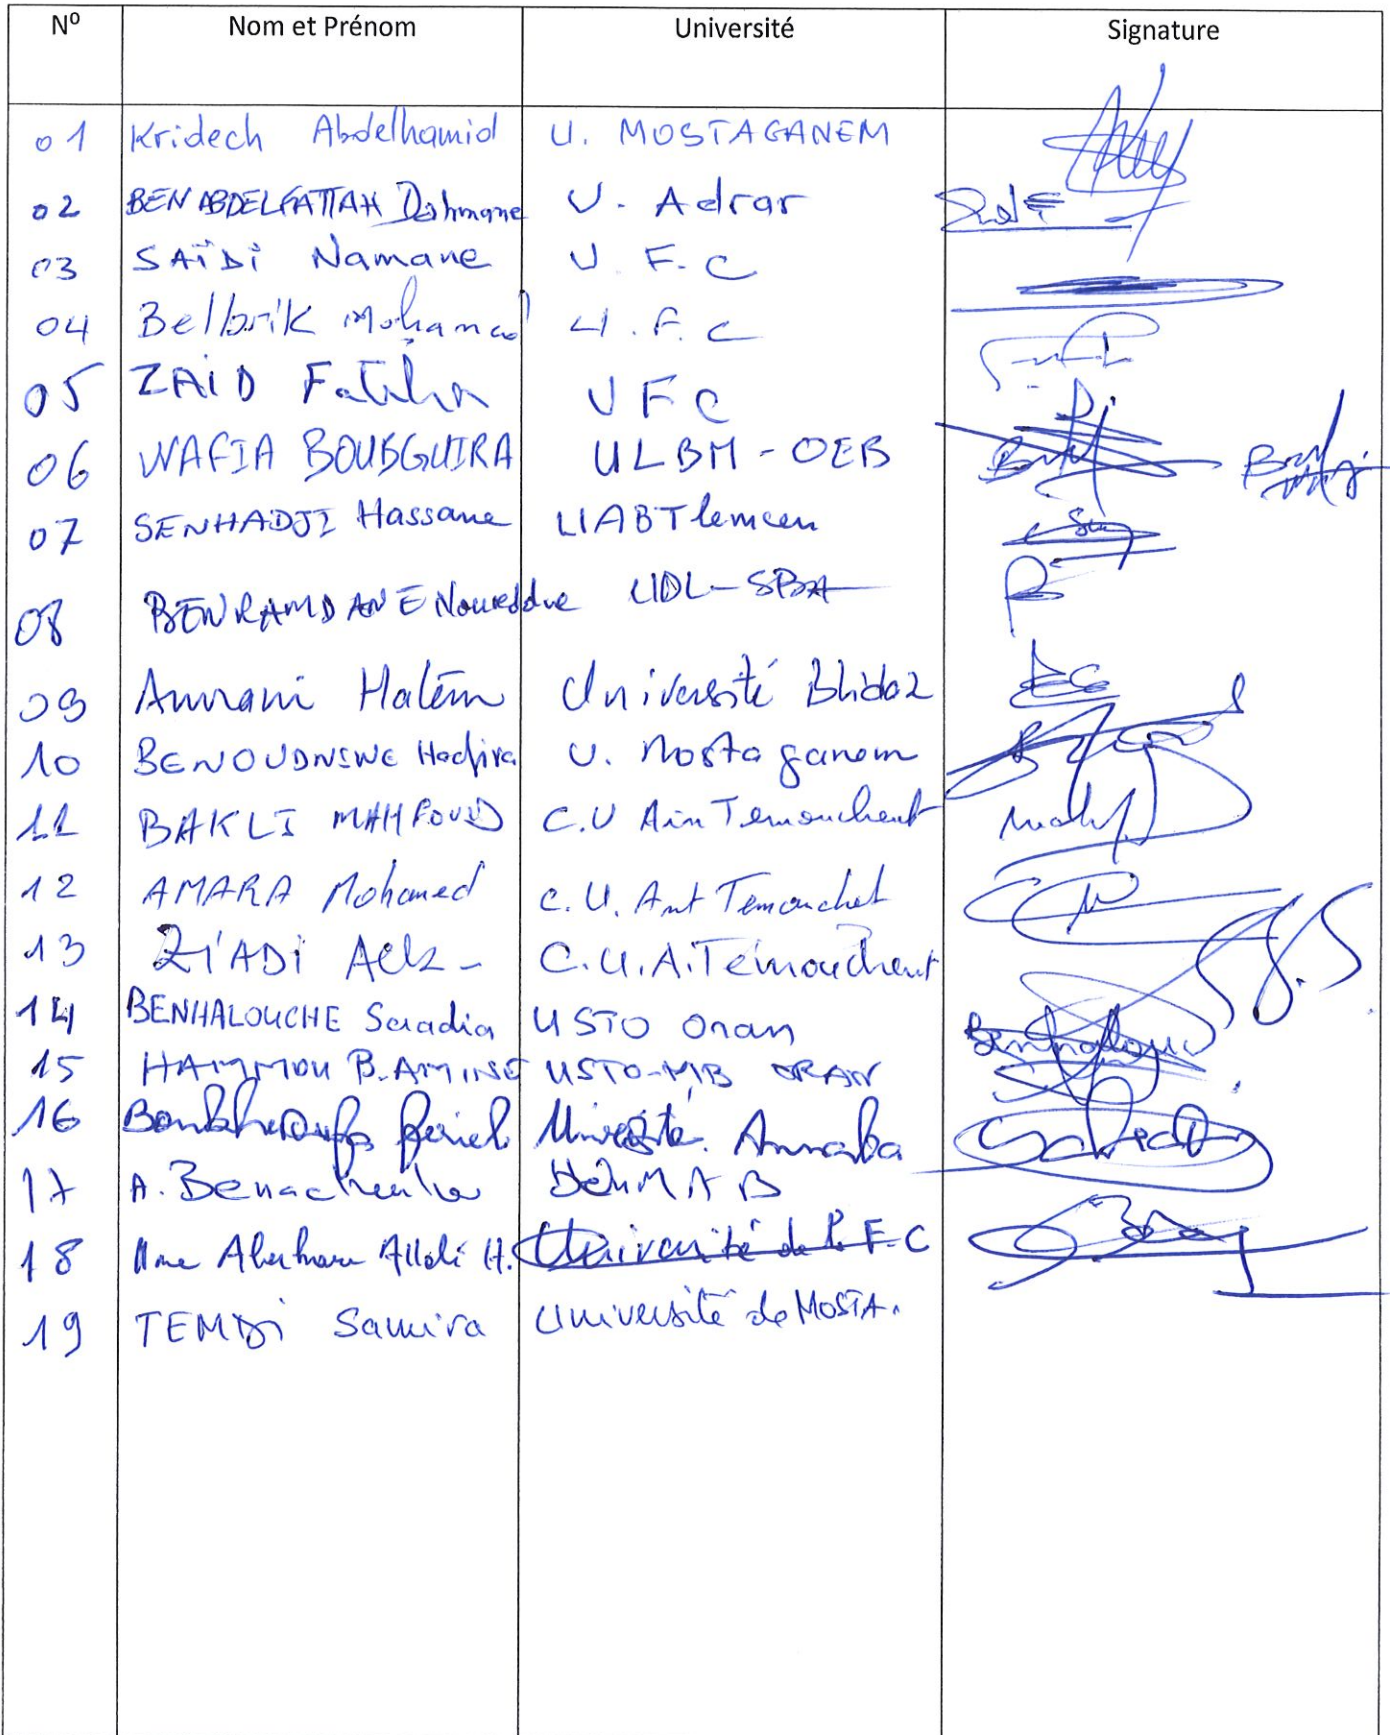 N° Nom et Prénom Université Signature
01 Kridech Abdelhamid U. MOSTAGANEM
02 BENABDELFATTAH Dahmane U. Adrar
03 SAÏDI Namane U. F. C
04 Belbrik Mohamed U. F. C
05 ZAID Fatiha UFC
06 WAFIA BOUBGUIRA ULBM - OEB
07 SENHADJI Hassane UABTlemcen
08 BENRAMDANE Noureddine UDL-SBA
09 Amrani Halém Université Blida2
10 BENOUDNINE Hadjira U. Mostaganem
11 BAKLI MAHFOUD C.U Ain Temouchent
12 AMARA Mohamed C.U. Ant Temouchet
13 ZIADI C.U.A.Témouchent
14 BENHALOUCHE Saadia USTO Oran Benhalouche
15 HAMMOU B.AMINE USTO-MB ORAN
16 Université Annaba
17 A.
18 Mme H. Université de la F.C
19 TEMDI Samira Université de MOSTA.